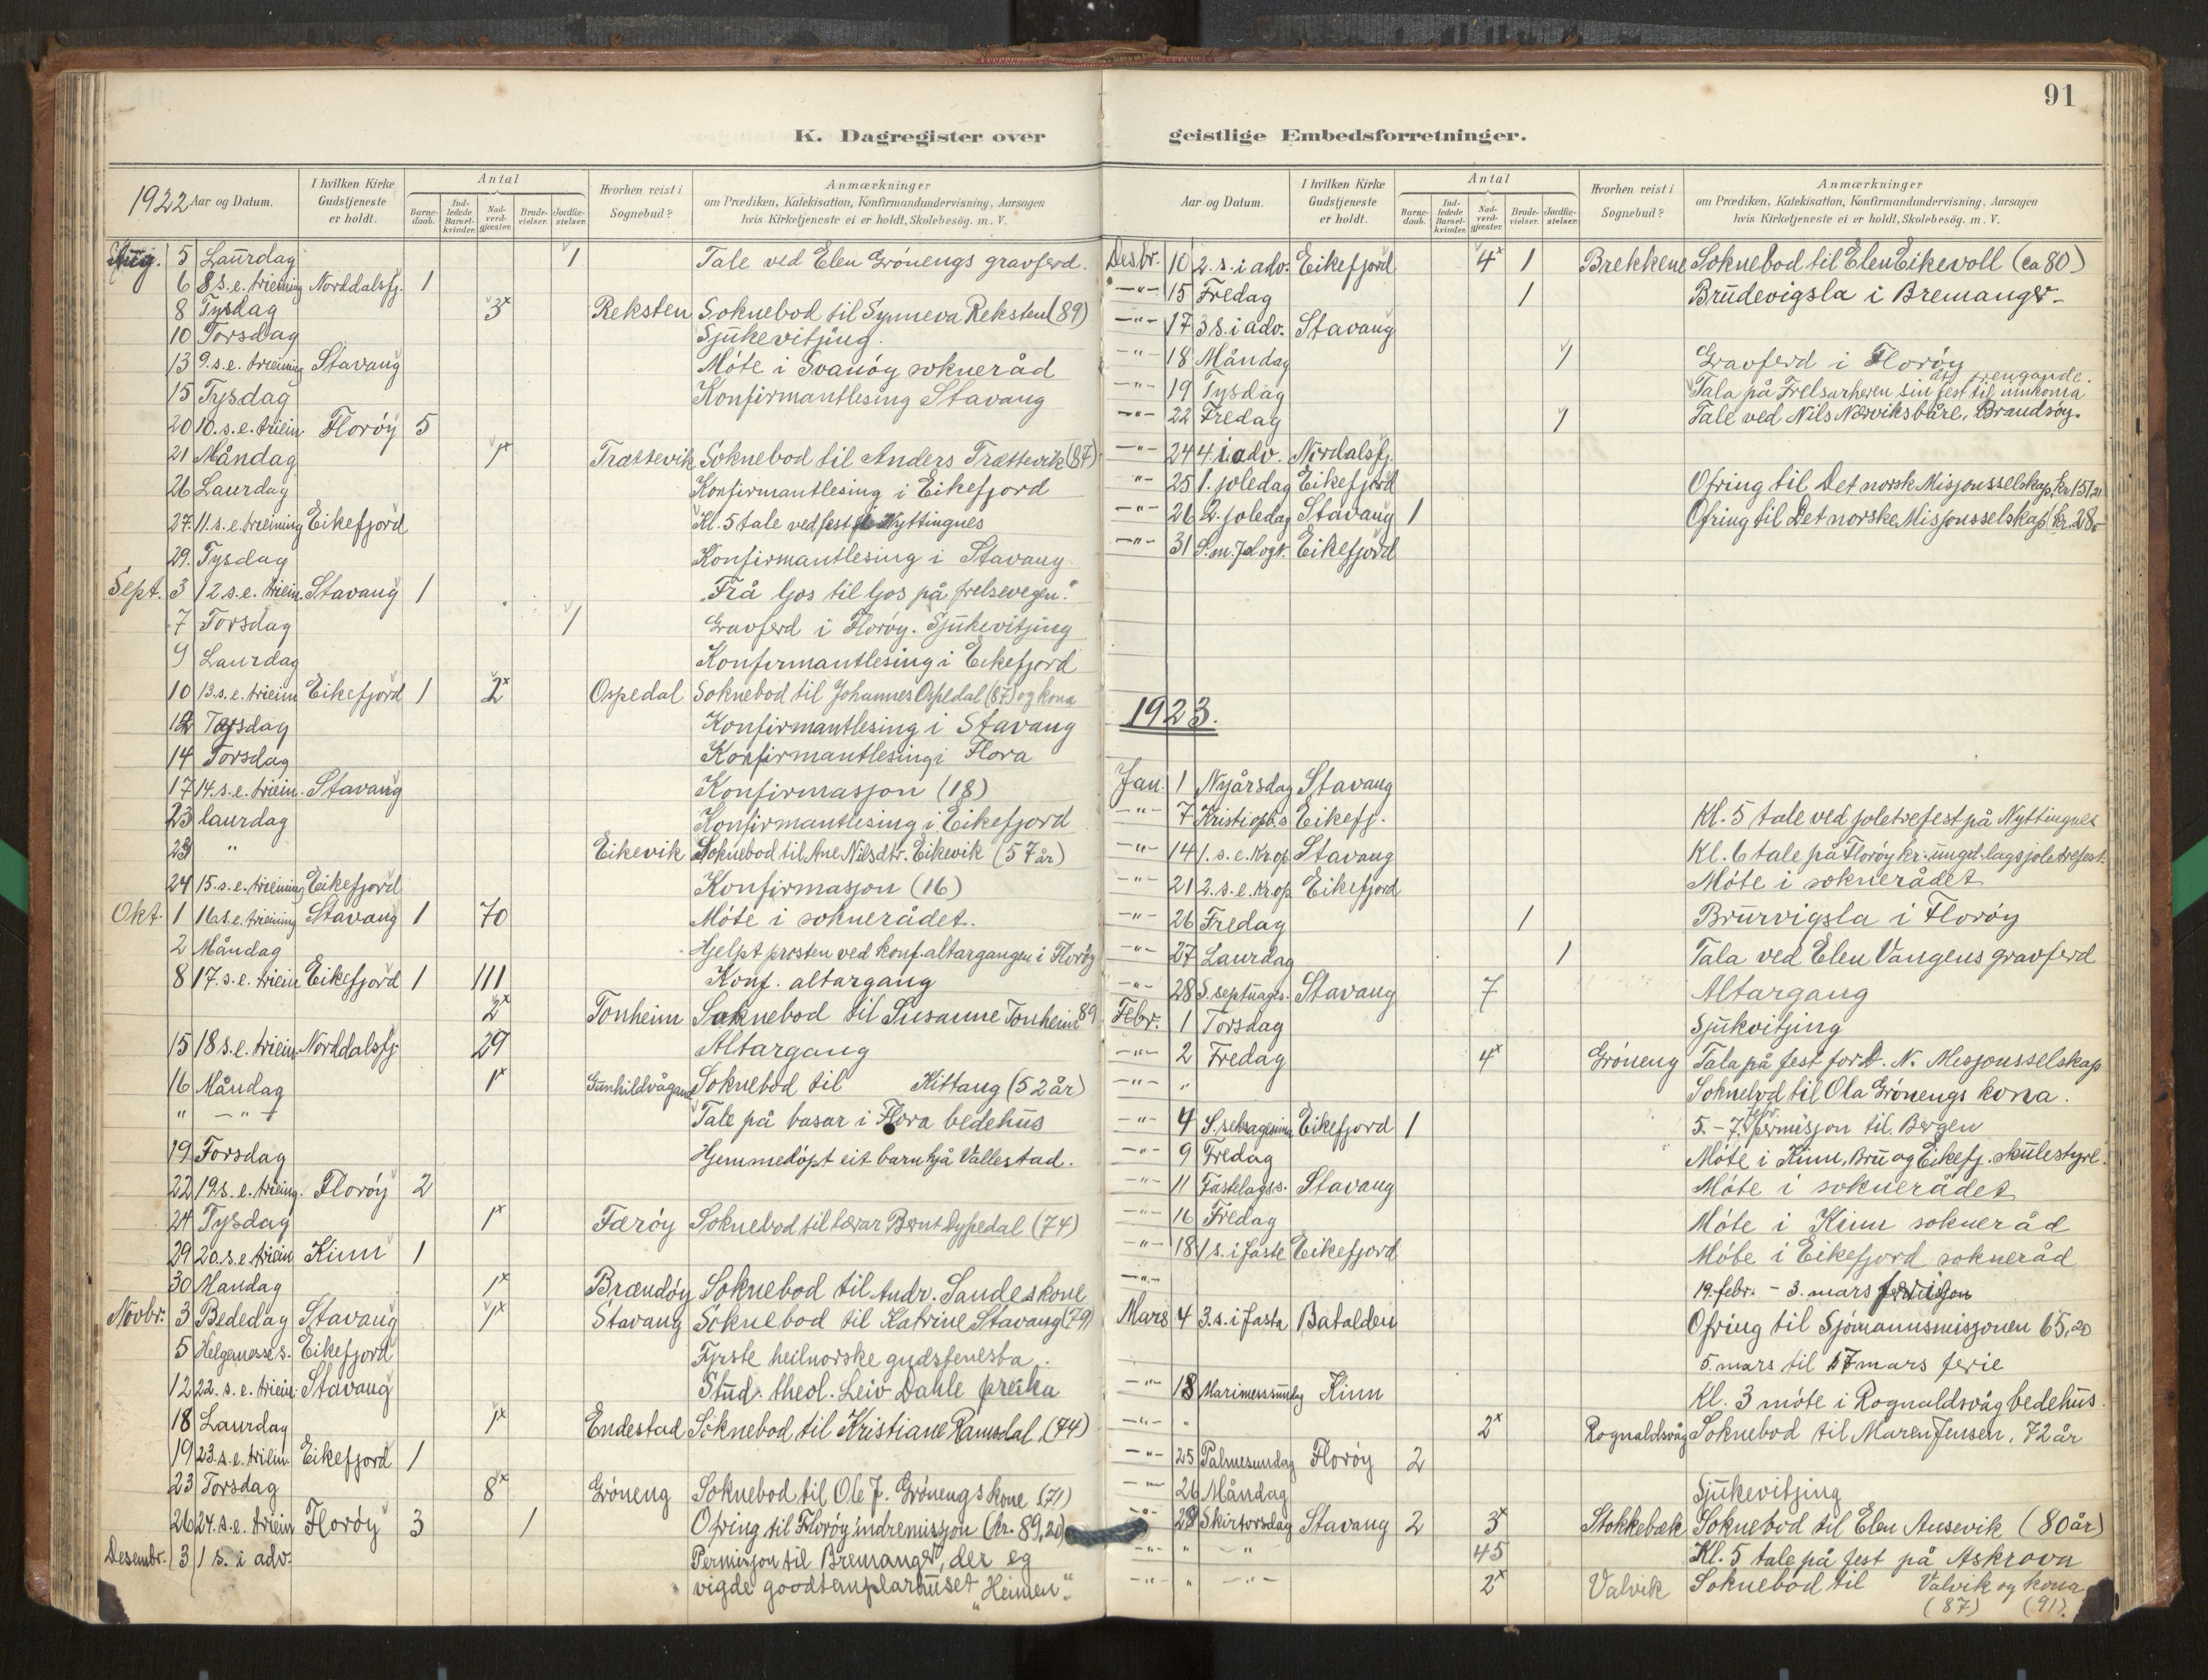 91
K. Dagregister over geistlige Embedsforretninger.
1922 Aar og Datum. I hvilken Kirke Gudstjeneste er holdt. Antal Barne-daab. Ind-ledede Barsel-kvinder. Nad-verd-gjæster. Brude-vielser. Jordfæ-stelser. Hvorhen reist i Sognebud? Anmærkninger om Prædiken, Katekisation, Konfirmandundervisning, Aarsagen hvis Kirketjeneste ei er holdt, Skolebesög. m. V.
Aug. 5 Laurdag 1 Tale ved Elen Grönengs gravferd.
6 8 s.e. trieining Norddalsfj. 1
8 Tysdag 3x Reksten Soknebod til Synneva Reksten (89)
10 Torsdag Sjukevitjing.
13 9. s.e. trieining Stavang Möte i Svanöy sokneråd
15 Tysdag Konfirmantlesing Stavang
20 10. s.e. triein. Floröy 5
21 Måndag 1x Trættevik Soknebod til Anders Trættevik (87)
26 Laurdag Konfirmantlesing i Eikefjord
27 11. s.e. trieining Eikefjord Kl. 5 tale ved fest på Nyttingnes
29. Tysdag Konfirmantlesing i Stavang.
Sept. 3 12 s.e. triein. Stavang 1 "Frå ljos til ljos på frelsevegen."
7 Torsdag 1 Gravferd i Floröy. Sjukevitjing
9 Laurdag Konfirmantlesing i Eikefjord
10 13. s.e. triein Eikefjord 1 2x Ospedal Soknebod til Johannes Ospedal (87) og kona
12 Tysdag Konfirmantlesing i Stavang
14 Torsdag Konfirmantlesing i Flora
17 14. s.e. triein. Stavang Konfirmasjon (18)
23 laurdag Konfirmantlesing i Eikefjord
23 " Eikevik Soknebod til Ane Nilsdtr. Eikevik (57 år)
24 15. s.e. trieining Eikefjord Konfirmasjon (16)
Okt. 1 16 s.e. trieining Stavang 1 70 Möte i soknerådet.
2 Måndag Hjelpt prosten ved konf. altargangen i Floröy
8 17. s.e. triein Eikefjord 1 111 Konf. altargang
2x Tonheim Soknebod til Susanne Tonheim 89
15 18 s.e. triein. Norddalsfj. 29 Altargang
16 Måndag 1x Gunhildvågane Soknebod til Kittang (52 år)
" -"- Tale på basar i Flora bedehus
19 Torsdag Hjemmedöpt eit barn hjå Vallestad.
22 19. s.e. trieing. Floröy 2
24 Tysdag 1x Færöy Soknebod til lærar Bernt Dypedal (74)
29 20. s.e. triein Kinn 1
30 Mandag 1x Brandöy Soknebod til Andr. Sandes kone
Novbr. 3 Bededag Stavang 1x Stavang Soknebod til Katrine Stavang (79)
5 Helgemesse s. Eikefjord Fyrste heilnorske gudstenesta.
12 22. s.e. triein. Stavang Stud. theol. Leiv Dahle preika
18 Laurdag 1x Endestad Soknebod til Kristiane Ramsdal (74)
19 23. s.e. triein. Eikefjord 1
23 Torsdag 8x Gröneng Soknebod til Ole J. Grönengs kone (71)
26 24. s.e. triein Floröy 3 1 Ofring til Floröy indremisjon (kr. 89,20)
Desembr. 3 1 s. i adv. Permisjon til Bremanger, der eg
vigde goodtemplarhuset "Heimen".
Aar og Datum. I hvilken Kirke Gudstjeneste er holdt. Antal Barne-daab. Ind-ledede Barsel-kvinder. Nad-verd-gjæster. Brude-vielser. Jordfæ-stelser. Hvorhen reist i Sognebud? Anmærkninger om Prædiken, Katekisation, Konfirmandundervisning, Aarsagen hvis Kirketjeneste ei er holdt, Skolebesög. m. V.
Desbr. 10 2. s. i adv. Eikefjord 4x 1 Brekkene Soknebod til Elen Eikevoll (ca 80)
-"- 15 Fredag 1 Brudevigsla i Bremanger
-"- 17 3 s. i adv. Stavang
-"- 18 Måndag 1 Gravferd i Floröy
-"- 19 Tysdag Tala på Frelsarheren sin fest til innkoma åt trengande.
-"- 22 Fredag 1 Tale ved Nils Nærviks båre, Brandsöy.
-"- 24 4. i adv. Nordalsfj.
-"- 25 1. joledag Eikefjord Ofring til Det norsk Misjonsselskap kr 151,21
-"- 26 2. joledag Stavang 1 Ofring til Det norske Misjonsselskap kr. 28,-
-"- 31 S.m. Jol og n. Eikefjord
1923.
Jan. 1 Nyårsdag Stavang
-"- 7 Kristi opb. s Eikefj. Kl. 5 tale ved joletrefest på Nyttingnes
-"- 14 1. s.e. kr.op. Stavang Kl. 6 tale på Floröy kr. ungd. lags joletrefest.
-"- 21 2. s.e. kr.op Eikefjord Möte i soknerådet
-"- 26 Fredag 1 Brurvigsla i Floröy
-"- 27 Laurdag 1 Tala ved Elen Vangens gravferd
-"- 28 S. septuages. Stavang 7 Altargang
Febr. 1 Torsdag Sjukvitjing
-"- 2 Fredag 4x Gröneng Tala på fest for D. N. Misjonsselskap
-"- " Soknebod til Ola Grönengs kona.
-"- 4 S. seksagesima Eikefjord 1 5.-7. febr. permisjon til Bergen
-"- 9 Fredag Möte i Kinn, Bru og Eikefj. skulestyre.
-"- 11 Fastelags s. Stavang Möte i soknerådet
-"- 16 Fredag Möte i Kinn sokneråd
-"- 18 1 s. i faste Eikefjord Möte i Eikefjord sokneråd
-"- 19. febr. - 3. mars
Mars 4 3. s. i fasta Batalden Ofring til Sjömannsmisjonen 65,20
5. mars til 17 mars ferie
-"- 18 Marimessundag Kinn Kl. 3 möte i Rognaldsvåg bedehus.
-"- " 2x Rognaldsvåg Soknebod til Maren Jensen, 72 år
-"- 25 Palmesundag Floröy 2
-"- 26 Måndag Sjukevitjing
-"- 28 Skirtorsdag Stavang 2 3x Stokkebæk Soknebod til Elen Ausevik (80 år)
-"- " -"- 45 Kl. 5 tale på fest på Askrova
-"- " -"- 2x Valvik Soknebod til Valvik og kona
(87) (91).